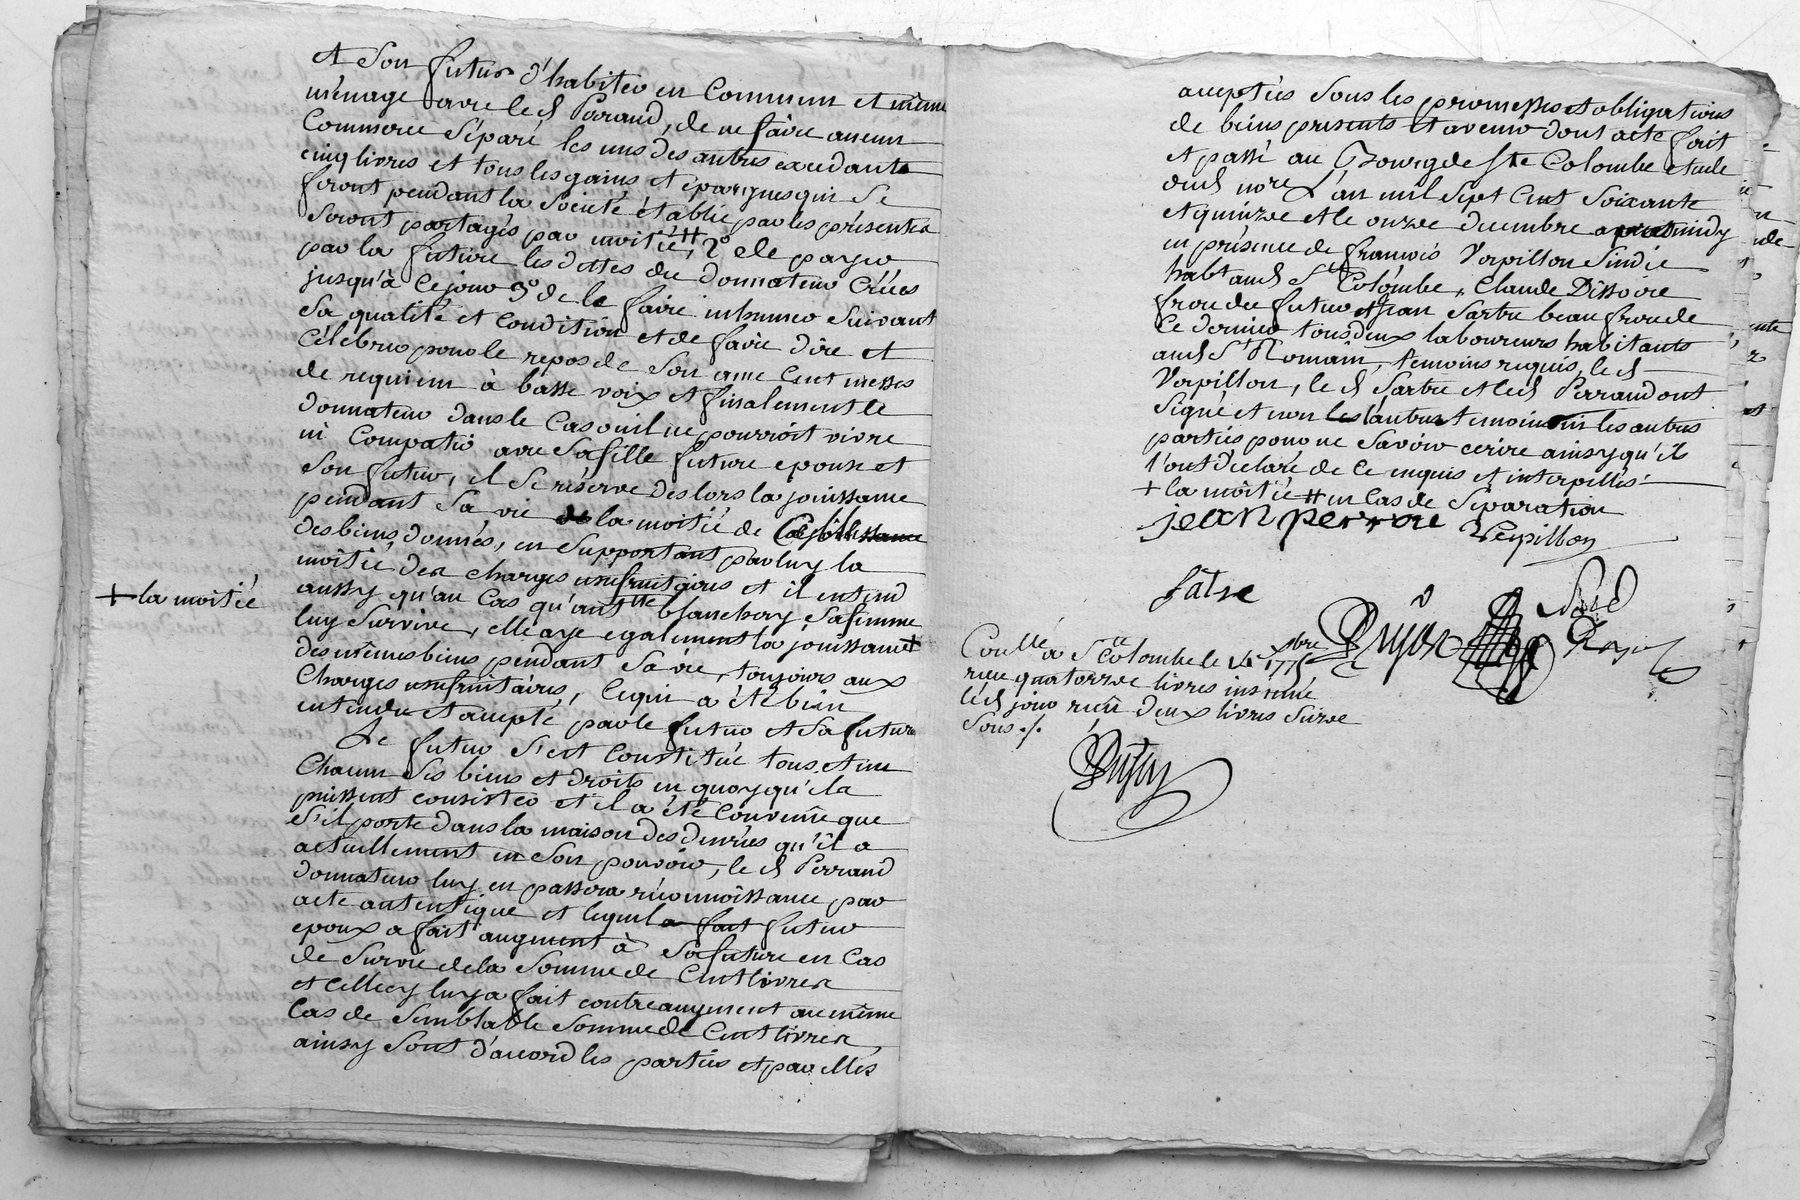 et son futur d'habiter en commun et même
ménage avec led Perraud, de ne faire aucun
commerce séparé les uns des autres excedants
cinq livres et tous les gains et épargnes qui se
feront pendant la société établie par les présentes
seront partagés par moitié #, 2º de payer
par la future les dettes du donnateur créées
jusqu'à ce jour 3º de le faire inhumer suivant
sa qualité et condition et de faire dire et
célébrer pour le repos de son ame cent messes
de requiem à basse voix et finalement le
donnateur dans le cas ou il ne pourroit vivre
ni compatir avec sa fille future epouse et
son futur, il se réserve des lors la jouissance
pendant sa vie de la moitié de
des biens donnés, en supportant par luy la
moitié des charges usufruitaires et il entend
aussy qu'au cas qu'antte blanchery sa femme
+ la moitié
luy survive, elle aye egalement la jouissance +
des mêmes biens pendant sa vie, toujours aux
charges usufruitaires, ce qui a été bien
entendu et accepté par le futur et sa future
Le futur s'est constitué tous et un
chacun ses biens et droits en quoy qu'ils
puissent consister et il a été convenu que
s'il porte dans la maison des denrées qu'il a
actuellement en son pouvoir, led Perraud
donnateur luy en passera réconnoissance par
acte autentique et lequel a fait futur
epoux a fait augment à sa future en cas
de survie de la somme de cent livres
et celle cy luy a fait contre augment au même
cas de semblable somme de cent livres,
ainsy sont d'accord les parties et par elles
acceptées sous les promesses et obligations
de biens présents et avenir dont acte fait
et passé au Bourg de Ste Colombe etude
dud nore L'an mil sept cent soixante
et quinze et le onze décembre apres midy
en présence de françois Verpillon sindic
habt aud Ste Colombe, Claude Dissoire
frere du futur et Jean Sartre beau frere de
ce dernier tous deux laboureurs habitants
aud St Romain, témoins requis, led
Verpillon, led Sartre et led Perraud ont
signé et non les autres temoins ni les autres
parties pour ne savoir ecrire ainsy qu'ils
l'ont déclaré de ce enquis et interpellés
+ la moitié # en cas de séparation
jean perrore Verpillon
satre
Dujas
Coullé à Ste Colombe le 14 xbre 1775
reçu quatorze livres insinué
léd jour reçu deux livres seize
sous ./.
Dujas